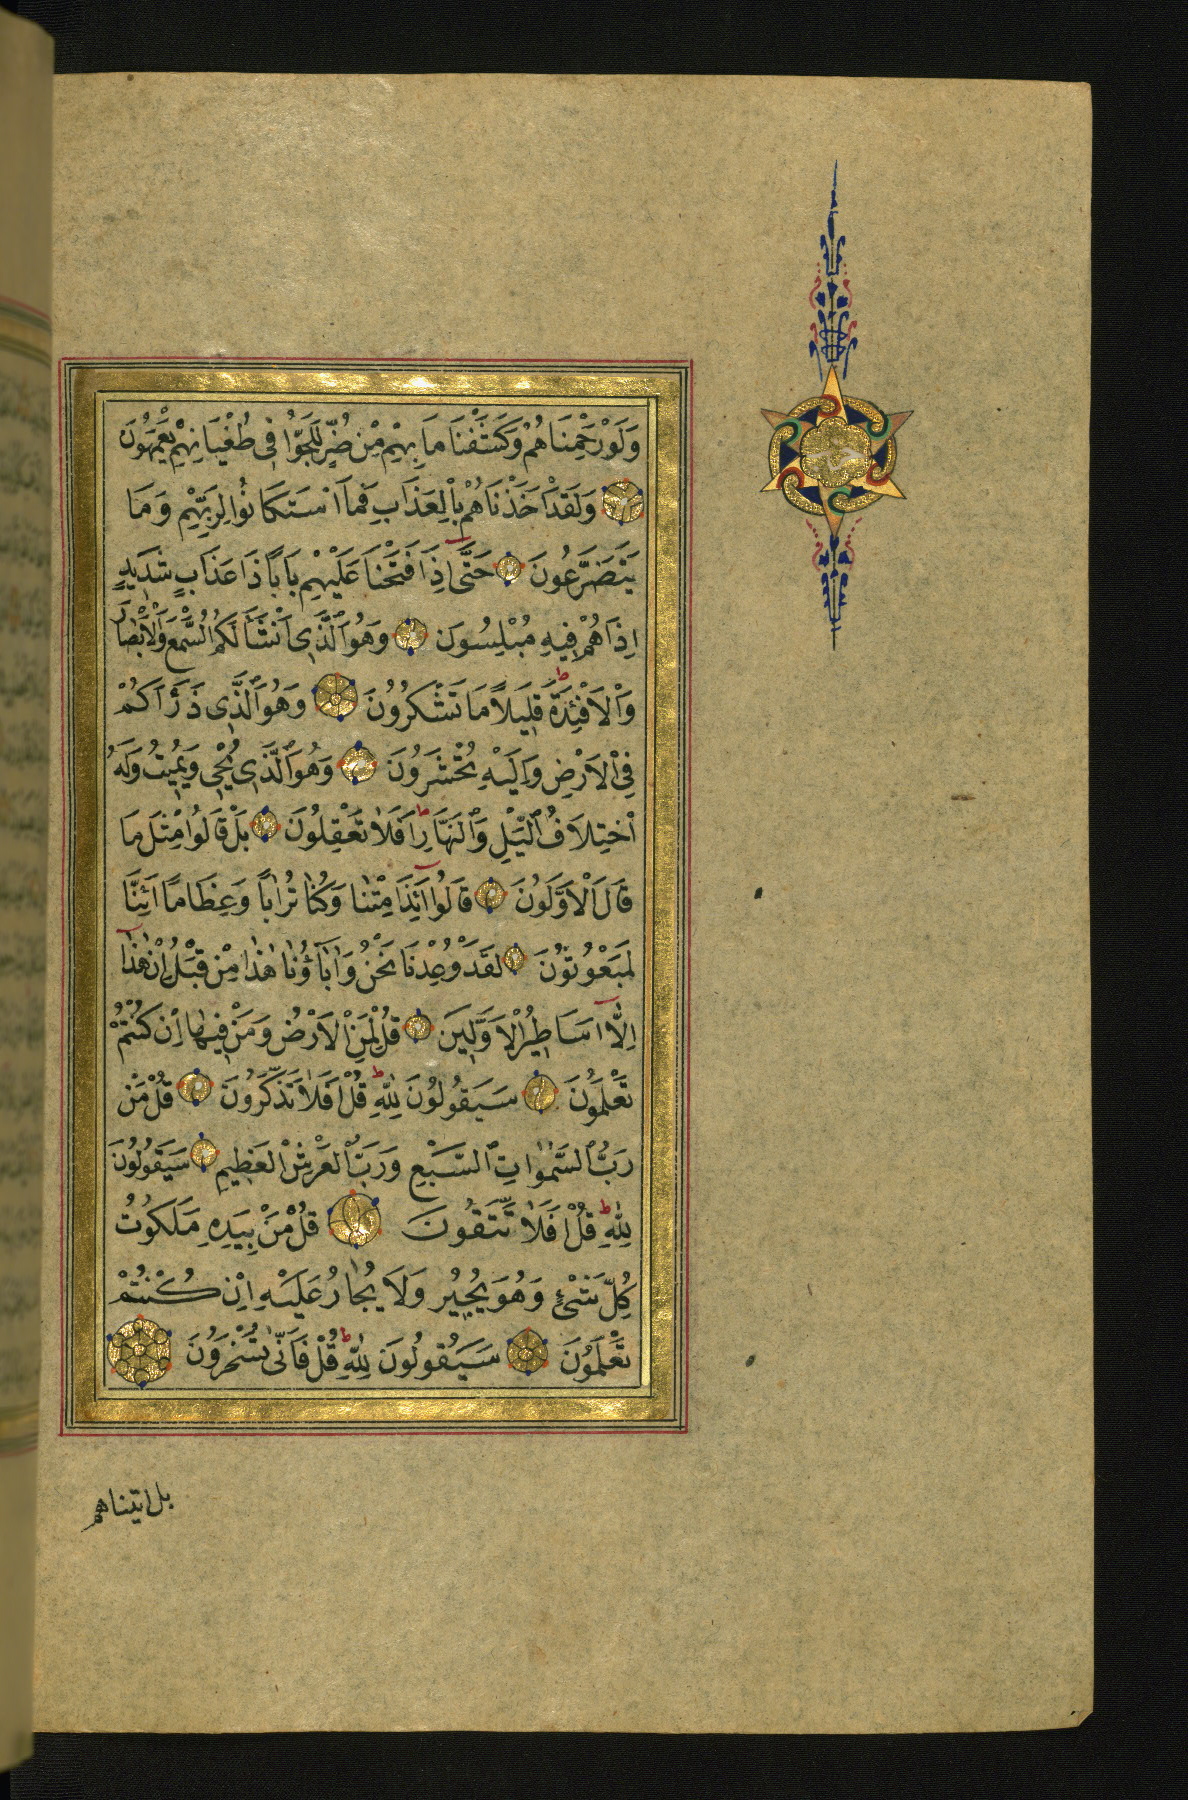 وَلَوْ رَحِمْنَاهُمْ وَكَشَفْنَا مَا بِهِمْ مِنْ ضُرٍّ لَلَجُّوا فِى طُغْيَانِهِمْ يَعْمَهُونَ
وَلَقَدْ اَخَذْنَاهُمْ بِالْعَذَابِ فَمَا اسْتَكَانُوا لِرَبِّهِمْ وَمَا
يَتَضَرَّعُونَ حَتّٰى اِذَا فَتَحْنَا عَلَيْهِمْ بَابًا ذَا عَذَابٍ شَدِيدٍ
اِذَا هُمْ فِيهِ مُبْلِسُونَ وَهُوَ الَّذِى اَنْشَأَ لَكُمُ السَّمْعَ وَالْاَبْصَارَ
وَالْاَفْئِدَةَ ط قَلِيلًا مَا تَشْكُرُونَ وَهُوَ الَّذِى ذَرَاَكُمْ
فِى الْاَرْضِ وَاِلَيْهِ تُحْشَرُونَ وَهُوَ الَّذِى يُحْيِى وَيُمِيتُ وَلَهُ
اخْتِلَافُ الَّيْلِ وَالنَّهَارِ ط اَفَلَا تَعْقِلُونَ بَلْ قَالُوا مِثْلَ مَا
قَالَ الْاَوَّلُونَ قَالُوا اَئِذَا مِتْنَا وَكُنَّا تُرَابًا وَعِظَامًا اَئِنَّا
لَمَبْعُوثُونَ لَقَدْ وُعِدْنَا نَحْنُ وَاٰبَاؤُنَا هٰذَا مِنْ قَبْلُ اِنْ هٰذَا
اِلَّا اَسَاطِيرُ الْاَوَّلِينَ قُلْ لِمَنِ الْاَرْضُ وَمَنْ فِيهَا اِنْ كُنْتُمْ
تَعْلَمُونَ سَيَقُولُونَ لِلّٰهِ ط قُلْ اَفَلَا تَذَكَّرُونَ قُلْ مَنْ
رَبُّ السَّمٰوَاتِ السَّبْعِ وَرَبُّ الْعَرْشِ الْعَظِيمِ سَيَقُولُونَ
لِلّٰهِ ط قُلْ اَفَلَا تَتَّقُونَ قُلْ مَنْ بِيَدِهِ مَلَكُوتُ
كُلِّ شَىْءٍ وَهُوَ يُجِيرُ وَلَا يُجَارُ عَلَيْهِ اِنْ كُنْتُمْ
تَعْلَمُونَ سَيَقُولُونَ لِلّٰهِ ط قُلْ فَاَنّٰى تُسْحَرُونَ
بل اتيناهم